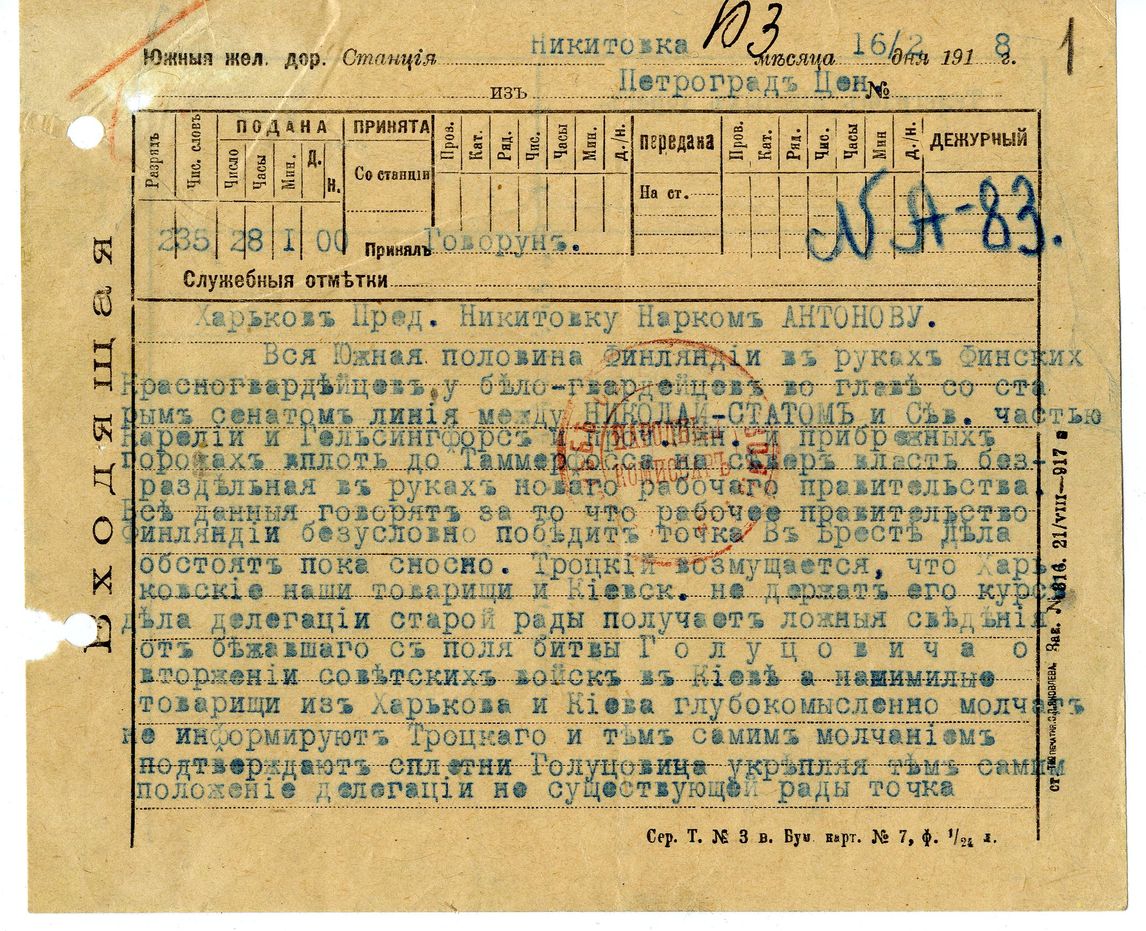 Южныя жел. дор. Станція Никитовка мѣсяца 16/2 дня 1918 г.
1
изъ Петроградъ Цен №
Разрядъ Чис. словъ ПОДАНА Число Часы Мин. Д. Н. ПРИНЯТА Со станціи Проз. Кат. Ряд. Чис. Часы Мин. Д./Н. передана На ст. Пров. Кат. Ряд. Чис. Часы Мин Д./Н. ДЕЖУРНЫЙ
N А-83.
235 28 I 00 Принялъ Говорунъ.
Служебныя отмѣтки
Входящая
Харьковъ Пред. Никитовку Нарком АНТОНОВУ.
Вся Южная половина Финляндіи въ рукахъ Финскихъ
Красногвардѣйцевъ у бѣло-гвардейцевъ во главѣ со ста
рымъ сенатомъ линія между НИКОЛАЙ-СТАТОМЪ и Сѣв. частью
Кареліи и Гельсингфорсъ и прибрежныхъ
городахъ вплоть до Таммерфосса на сѣверъ власть без-
раздѣльная въ рукахъ новаго рабочаго правительства.
Всѣ данныя говорятъ за то что рабочее правительство
Финляндіи безусловно побѣдитъ точка Въ Брестѣ Дѣла
обстоятъ пока сносно. Троцкій возмущается, что Харь-
ковскіе наши товарищи и Кіевск. не держатъ его курсъ
дѣла делегаціи старой рады получаетъ ложныя свѣдѣнія
отъ бѣжавшаго съ поля битвы Голуцовича о
вторженіи совѣтскихъ войскъ въ Кіевѣ а нашимилые
товарищи изъ Харькова и Кіева глубокомысленно молчатъ
не информируютъ Троцкаго и тѣмъ самимъ молчаніемъ
подтверждаютъ сплетни Голуцовица укрѣпляя тѣмъ самим
положеніе делегаціи не существующей рады точка
НАРОДНЫЙ
КОМИССАРЪ
Зак. № 316. 21/VIII—917 г.
Сер. Т. № 3 в. Бум. карт. № 7, ф. 1/24 л.